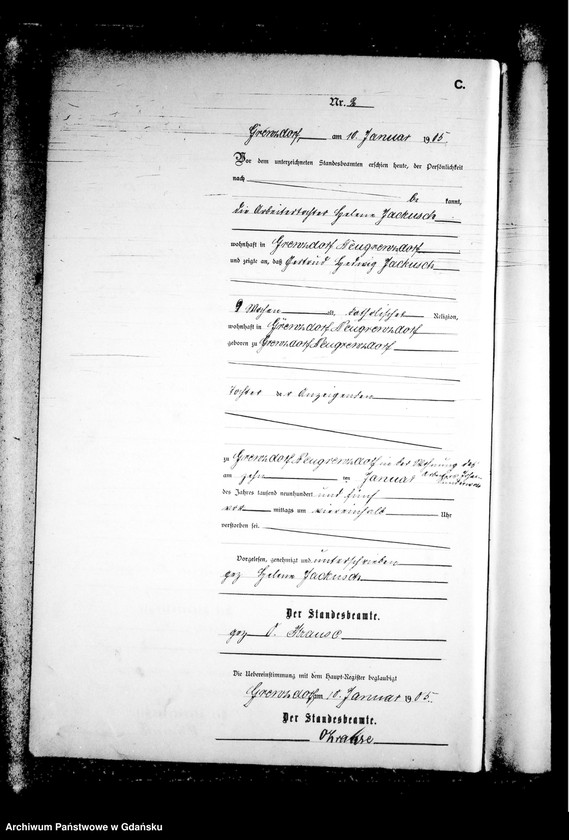 C.
Nr. 2
Grenzdorf, am 10. Januar 1905.
Vor dem unterzeichneten Standesbeamten erschien heute, der Persönlichkeit
nach
be kannt,
die Arbeitertochter Helene Jackusch
wohnhaft in Grenzdorf Neugrenzdorf
und zeigte an, daß Gertrud Hedwig Jackusch
9 Wochen alt, katholischer Religion,
wohnhaft in Grenzdorf Neugrenzdorf
geboren zu Grenzdorf Neugrenzdorf
Tochter der Anzeigenden
zu Grenzdorf Neugrenzdorf in der Wohnung des
am zehn ten Januar
des Jahres tausend neunhundert und fünf
vor mittags um viereinhalb Uhr
verstorben sei.
Vorgelesen, genehmigt und unterschrieben
gez Helene Jackusch
Der Standesbeamte.
gez O. Krause
Die Uebereinstimmung mit dem Haupt-Register beglaubigt
Grenzdorf am 10. Januar 1905.
Der Standesbeamte.
OKrause
Archiwum Państwowe w Gdańsku